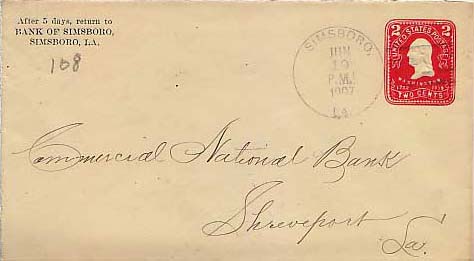 After 5 days, return to
BANK OF SIMSBORO,
SIMSBORO, LA.
108
SIMSBORO,
JUN
19
P.M.
1907
LA.
2 UNITED STATES POSTAGE 2
WASHINGTON
TWO CENTS
Commercial National Bank
Shreveport
La.